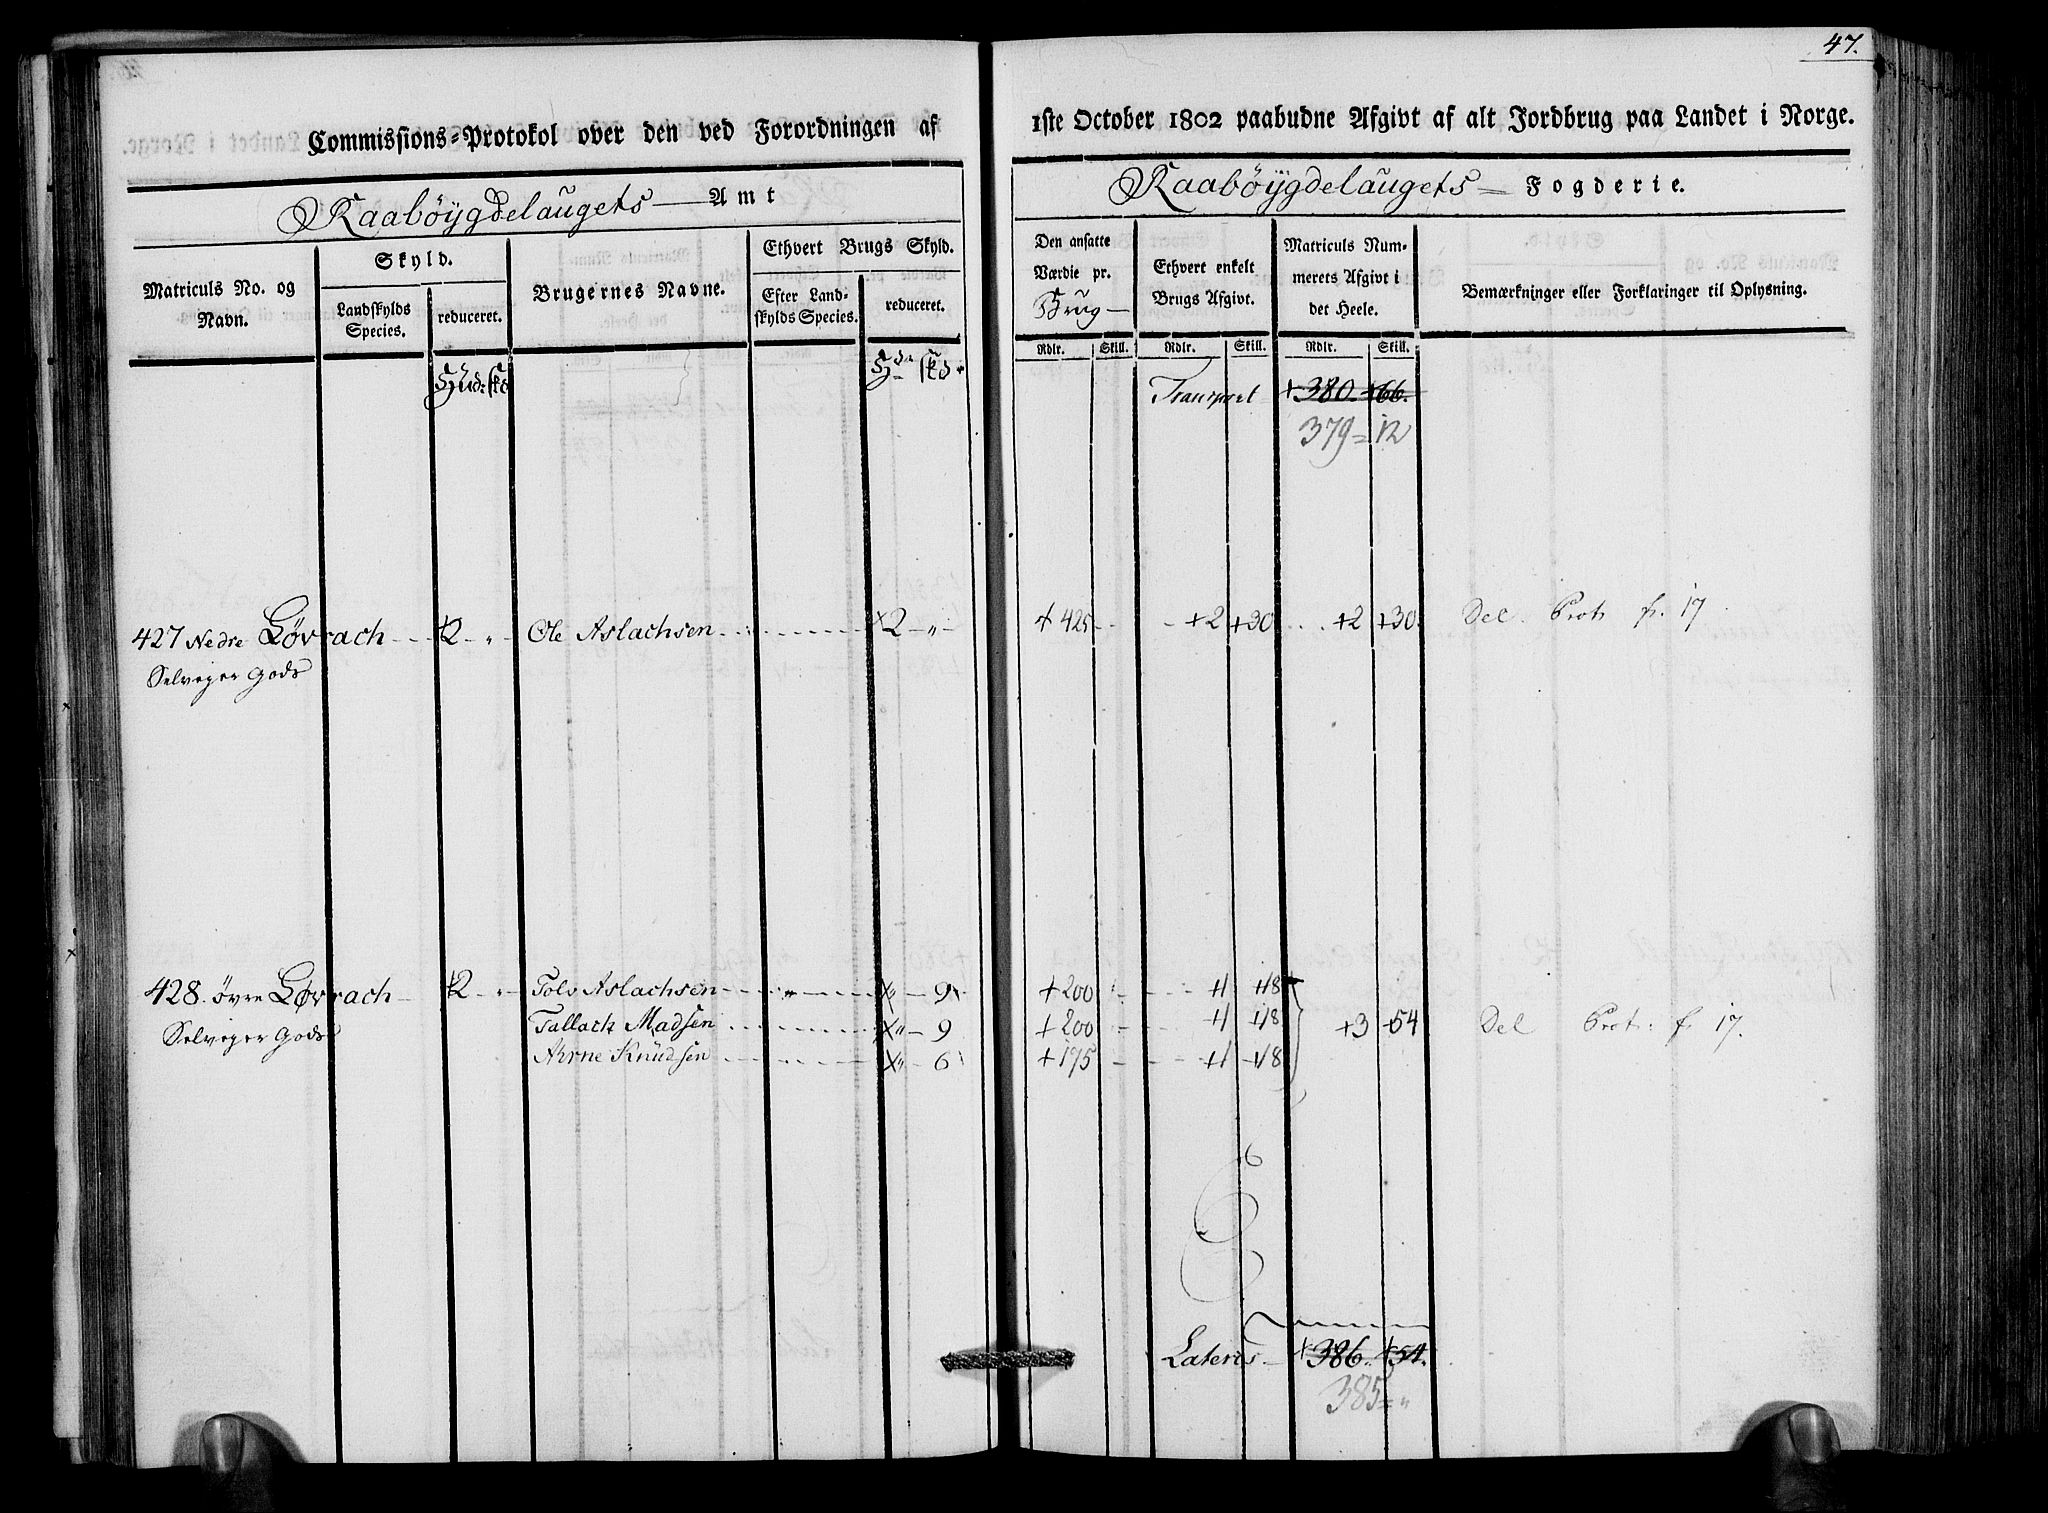 47.
Commissions-Protokol over den ved Forordningen af 1ste October 1802 paabudne Afgivt af alt Jordbrug paa Landet i Norge.
Raabøygdelaugets — Amt
Raabøygdelaugets — Fogderie.
Matriculs No. og Navn.
Skyld.
Landskylds Species.
reduceret.
Brugernes Navne.
Ethvert Brugs Skyld.
Efter Landskylds Species.
reduceret.
Den ansatte Værdie pr. Brug —
Ethvert enkelt Brugs Afgivt.
Matriculs Nummerets Afgivt i det Heele.
Bemærkninger eller Forklaringer til Oplysning.
Rdlr. Skill. Rdlr. Skill. Rdlr. Skill.
Transport +380. +66.
379 = 12
427 Nedre Løvrach - - +2 - „ - Ole Aslachsen - - - +2 - „ - + 425 - - - +2 +30 - - +2 +30. Del. Prot. fr. 17.
Selveyer Gods
428. øvre Løvrach - +2 - „ - Tolv Aslachsen - - „ - - - +„ - 9 +200 - - +1 +18
Tallach Madsen - - - +„ - 9 +200 - - +1 +18 +3 +54 Del Prot: f. 17.
Selveyer Gods
Aerne Knudsen - - - +„ - 6 +175 - - +1 +18
Lateris - +386. +54.
385 = „